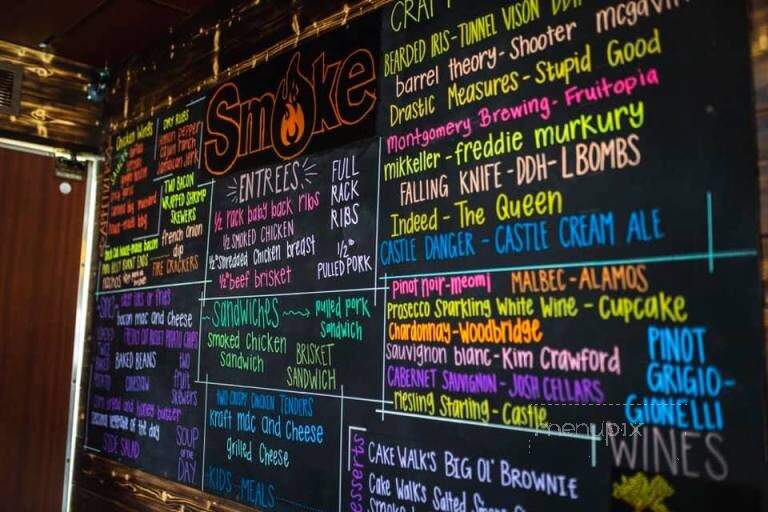 Chicken Wings
DRY RUBS
lemon pepper
cajun
jamaican jerk
TWO BACON
WRAPPED SHRIMP
SKEWERS
french onion
dip
FIRE CRACKERS
PORK BELLY BURNT ENDS
Smoke
ENTREES
1/2 rack baby back ribs
1/2 SMOKED CHICKEN
1/2 lb shredded chicken breast
1/2 lb beef brisket
FULL
RACK
RIBS
1/2 lb
PULLED PORK
Sandwiches
pulled pork
Sandwich
Smoked chicken
Sandwich
BRISKET
SANDWICH
bacon mac and cheese
BAKED BEANS
coleslaw
two
fruit
skewers
corn bread and honey butter
second vegetable of the day
SIDE SALAD
SOUP
of the
DAY
TWO CRISPY CHICKEN TENDERS
kraft mac and cheese
grilled cheese
KIDS MEALS
CRAFT
BEARDED IRIS-TUNNEL VISON DDH
barrel theory-Shooter mcgavin
Drastic Measures-Stupid Good
Montgomery Brewing-Fruitopia
mikkeller-freddie murkury
FALLING KNIFE-DDH-LBOMBS
Indeed-The Queen
CASTLE DANGER-CASTLE CREAM ALE
pinot noir-meomi
MALBEC-ALAMOS
prosecco Sparkling White Wine-Cupcake
Chardonnay-Woodbridge
sauvignon blanc-Kim Crawford
CABERNET SAUVIGNON-JOSH CELLARS
riesling Starling-Castle
PINOT
GRIGIO-
GIONELLI
WINES
menupix
desserts
CAKE WALK'S BIG OL' BROWNIE
Cake Walk's Salted